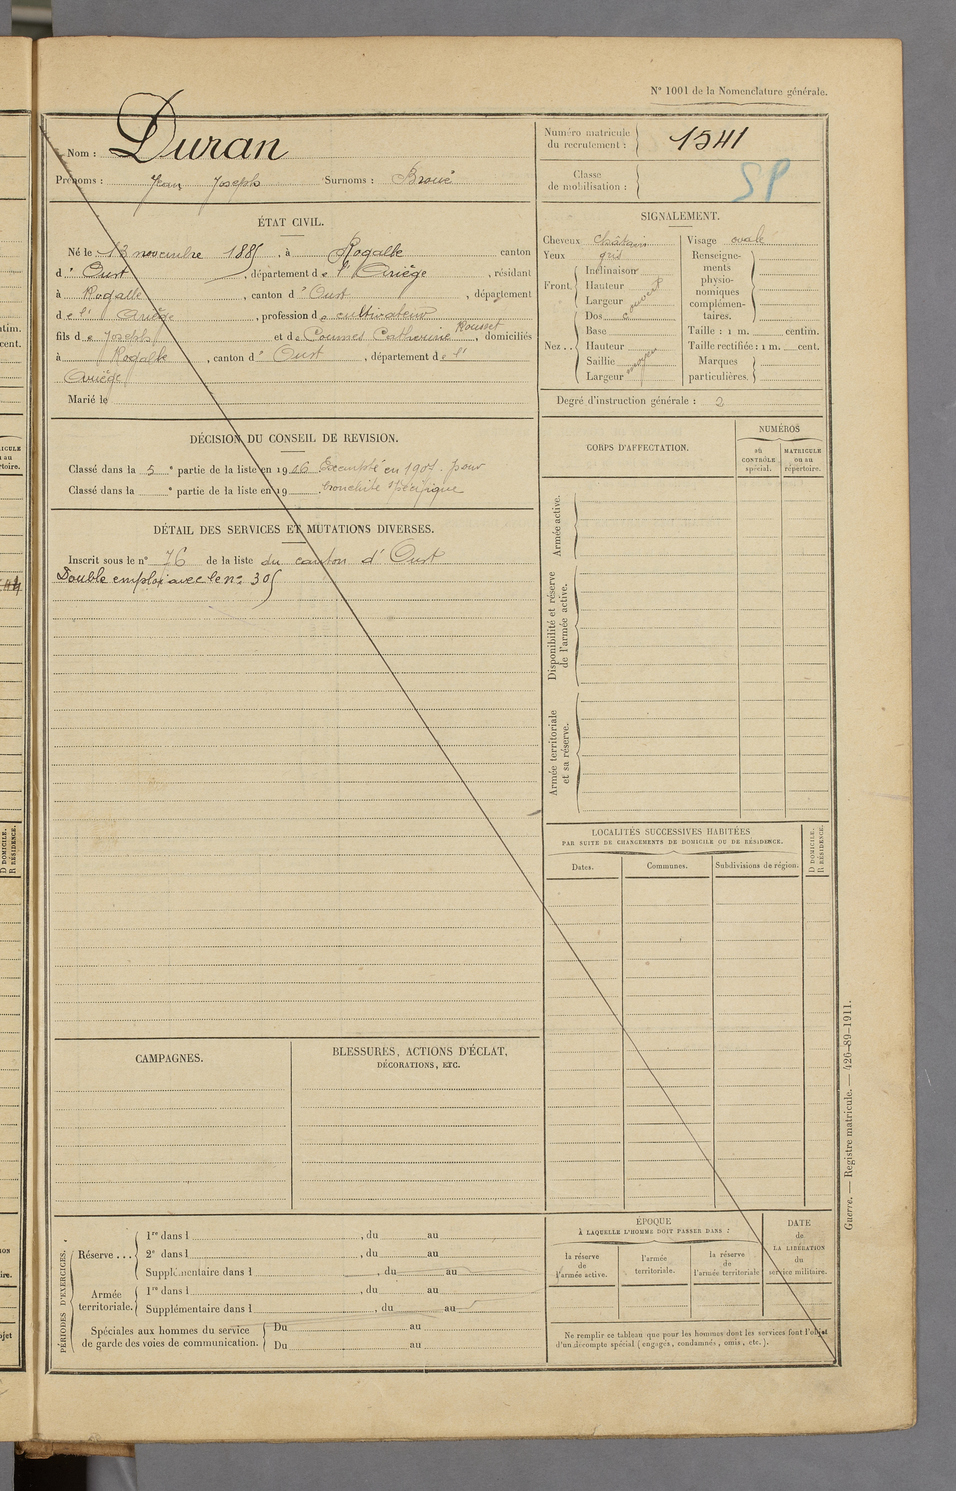 N° 1001 de la Nomenclature générale.
Nom : Duran
Prénoms : Jean Joseph Surnoms : Broué
Numéro matricule du recrutement : 1541
Classe de mobilisation :
SP
ÉTAT CIVIL.
Né le 13 novembre 1885, à Rogalle canton
d' Oust, département de l'Ariège, résidant
à Rogalle, canton d'Oust, département
de l' Ariège, profession de cultivateur
fils de Joseph et de Coumes Catherine Rousset, domiciliés
à Rogalle, canton d' Oust, département de l'
Ariège
Marié le
SIGNALEMENT.
Cheveux châtain
Yeux gris
Front. Inclinaison
Hauteur
Largeur couvert
Nez.. Dos
Base
Hauteur
Saillie
Largeur moyen
Visage ovale
Renseignements physionomiques complémentaires.
Taille : 1 m. centim.
Taille rectifiée : 1 m. cent.
Marques particulières.
Degré d'instruction générale : 2
DÉCISION DU CONSEIL DE REVISION.
Classé dans la 5e partie de la liste en 1916 Exempté en 190 . pour
Classé dans la e partie de la liste en 19 . bronchite spécifique
DÉTAIL DES SERVICES ET MUTATIONS DIVERSES.
Inscrit sous le n° 76 de la liste du canton d' Oust
Double emploi avec le n° 305
CORPS D'AFFECTATION.
NUMÉROS
au CONTRÔLE spécial.
MATRICULE ou au répertoire.
Armée active.
Disponibilité et réserve de l'armée active.
Armée territoriale et sa réserve.
LOCALITÉS SUCCESSIVES HABITÉES
PAR SUITE DE CHANGEMENTS DE DOMICILE OU DE RÉSIDENCE.
Dates.
Communes.
Subdivisions de région.
D DOMICILE.
R RÉSIDENCE.
CAMPAGNES.
BLESSURES, ACTIONS D'ÉCLAT,
DÉCORATIONS, ETC.
PÉRIODES D'EXERCICES.
Réserve...
1re dans l , du au
2e dans l , du au
Supplémentaire dans l , du au
Armée territoriale.
1re dans l , du au
Supplémentaire dans l , du au
Spéciales aux hommes du service de garde des voies de communication.
Du au
Du au
ÉPOQUE
À LAQUELLE L'HOMME DOIT PASSER DANS :
la réserve de l'armée active.
l'armée territoriale.
la réserve de l'armée territoriale
DATE de LA LIBÉRATION du service militaire.
Ne remplir ce tableau que pour les hommes dont les services font l'objet
d'un décompte spécial (engagés, condamnés, omis, etc.).
Guerre. — Registre matricule. — 426-89-1911.